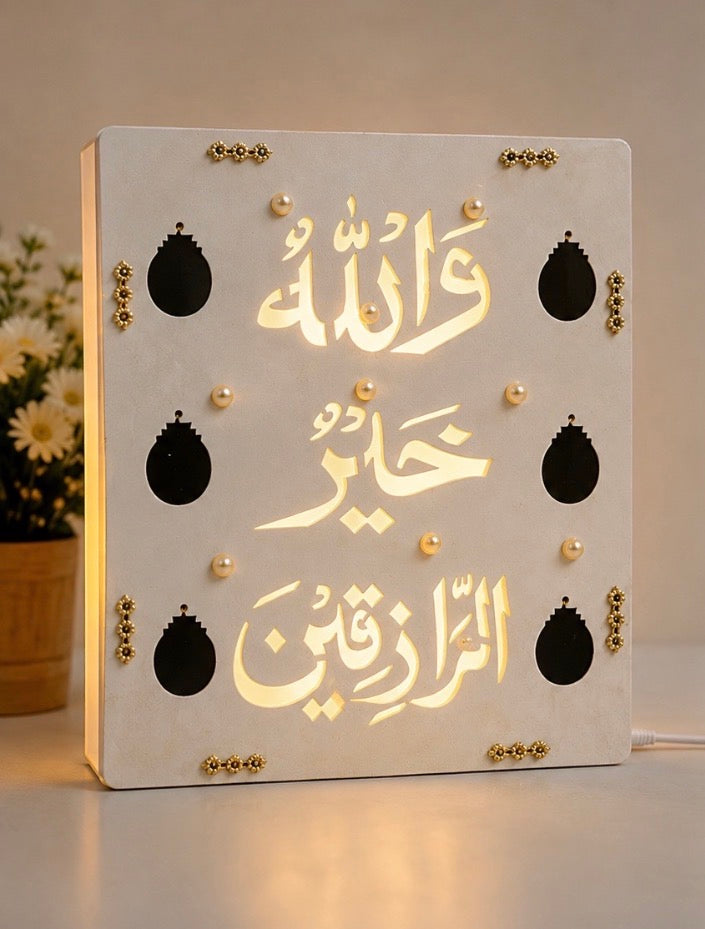 وَاللّٰهُ
خَيْرُ
الرَّازِقِيْنَ